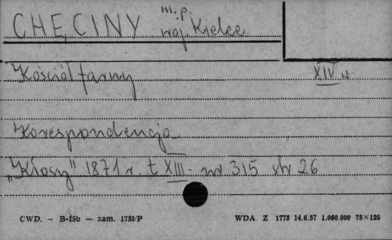 CHĘCINY m.p.
woj. Kielce
Kościół farny XIV w.
Korespondencja
"Kłosy" 1871 r. t XIII. nr 315 str 26
CWD. - B-15b - zam. 1753/P WDA Z 1773 14.6.57 1.060.000 75×125